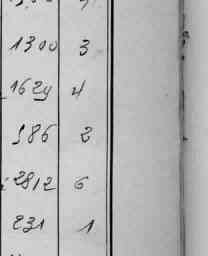 1300 3
1629 4
986 2
2812 6
231 1